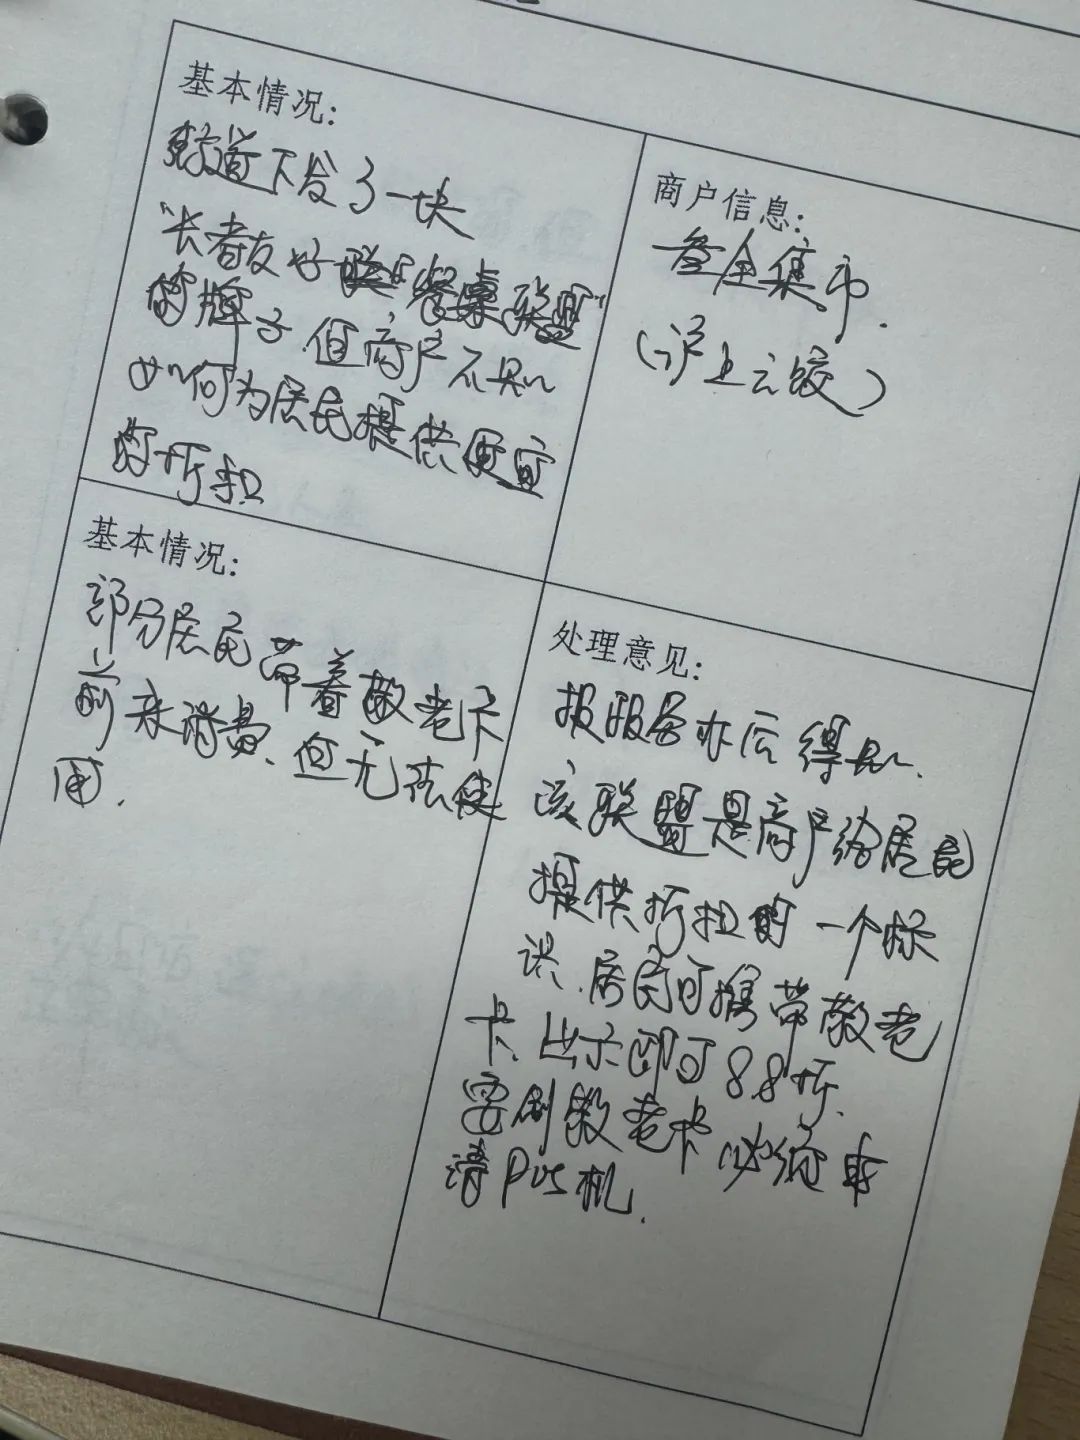 基本情况：
街道下发了一块
"长者友好餐桌联盟"
的牌子.但商户不知
如何为居民提供便宜
的折扣
商户信息：
叁全集市.
(沪上云饺)
基本情况：
部分居民带着敬老卡
前来消费、但无法使
用.
处理意见：
报服务办后得知、
该联盟是商户给居民
提供折扣的一个标
识.居民可携带敬老
卡、出示即可8.8折、
要刷敬老卡必须申
请POS机.